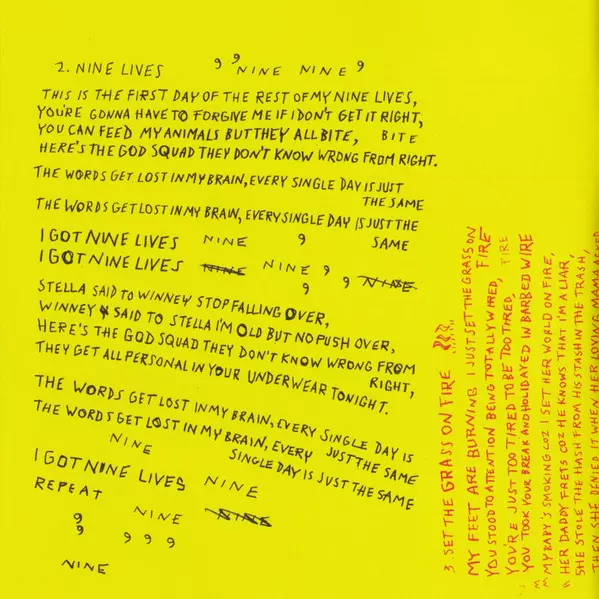 2. NINE LIVES 9 9 NINE NINE 9
THIS IS THE FIRST DAY OF THE REST OF MY NINE LIVES,
YOU'RE GONNA HAVE TO FORGIVE ME IF I DON'T GET IT RIGHT,
YOU CAN FEED MY ANIMALS BUT THEY ALL BITE, BITE
HERE'S THE GOD SQUAD THEY DON'T KNOW WRONG FROM RIGHT.
THE WORDS GET LOST IN MY BRAIN, EVERY SINGLE DAY IS JUST
THE SAME
THE WORDS GET LOST IN MY BRAIN, EVERY SINGLE DAY IS JUST THE
SAME
I GOT NINE LIVES NINE 9
I GOT NINE LIVES NINE NINE 9
9 9 9 NINE
STELLA SAID TO WINNEY STOP FALLING OVER,
WINNEY SAID TO STELLA I'M OLD BUT NO PUSH OVER,
HERE'S THE GOD SQUAD THEY DON'T KNOW WRONG FROM
RIGHT,
THEY GET ALL PERSONAL IN YOUR UNDERWEAR TONIGHT.
THE WORDS GET LOST IN MY BRAIN, EVERY SINGLE DAY IS
JUST THE SAME
THE WORDS GET LOST IN MY BRAIN, EVERY
SINGLE DAY IS JUST THE SAME
NINE
I GOT NINE LIVES NINE
REPEAT
9 NINE NINE
9 9 9 9
NINE
3. SET THE GRASS ON FIRE
MY FEET ARE BURNING I JUST SET THE GRASS ON
FIRE
YOU STOOD TO ATTENTION BEING TOTALLY WIRED, FIRE
YOU'RE JUST TOO TIRED TO BE TOO TIRED,
YOU TOOK YOUR BREAK AND HOLIDAYED IN BARBED WIRE
MY BABY'S SMOKING COZ I SET HER WORLD ON FIRE,
HER DADDY FRETS COZ HE KNOWS THAT I'M A LIAR,
SHE STOLE THE HASH FROM HIS STASH IN THE TRASH,
THEN SHE DENIED IT WHEN HER LOVING MAMA ASKED